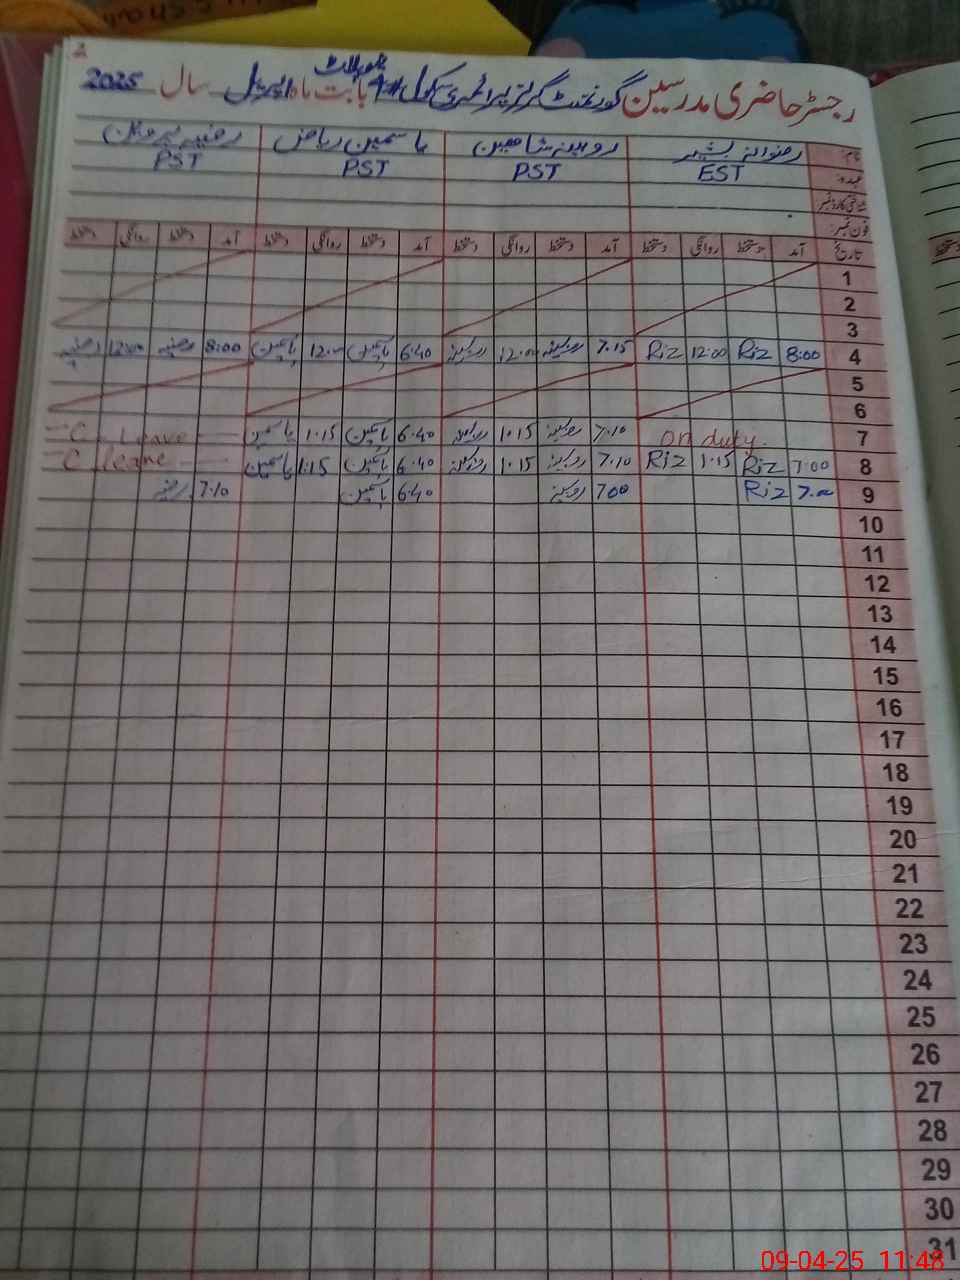 2
رجسٹر حاضری مدرسین گورنمنٹ گرلز پرائمری سکول #1 بابت ماہ اپریل سال 2025
نام: رضوانہ بشیر روبینہ شاہین یاسمین ریاض رضیہ پروین
عہدہ: EST PST PST PST
شناختی کارڈ نمبر
فون نمبر:
تاریخ آمد دستخط روانگی دستخط آمد دستخط روانگی دستخط آمد دستخط روانگی دستخط آمد دستخط روانگی دستخط
1
2
3
4 8:00 Riz 12:00 Riz 7.15 روبینہ 12:00 روبینہ 6.40 یاسمین 12:00 یاسمین 8:00 رضیہ 12:00 رضیہ
5
6
7 on duty. 7.10 روبینہ 1.15 روبینہ 6.40 یاسمین 1.15 یاسمین C. Leave
8 7:00 Riz 1.15 Riz 7.10 روبینہ 1.15 روبینہ 6.40 یاسمین 1:15 یاسمین C leave
9 7.00 Riz 7.00 روبینہ 6.40 یاسمین 7.10 رضیہ
10
11
12
13
14
15
16
17
18
19
20
21
22
23
24
25
26
27
28
29
30
31
09-04-25 11:48